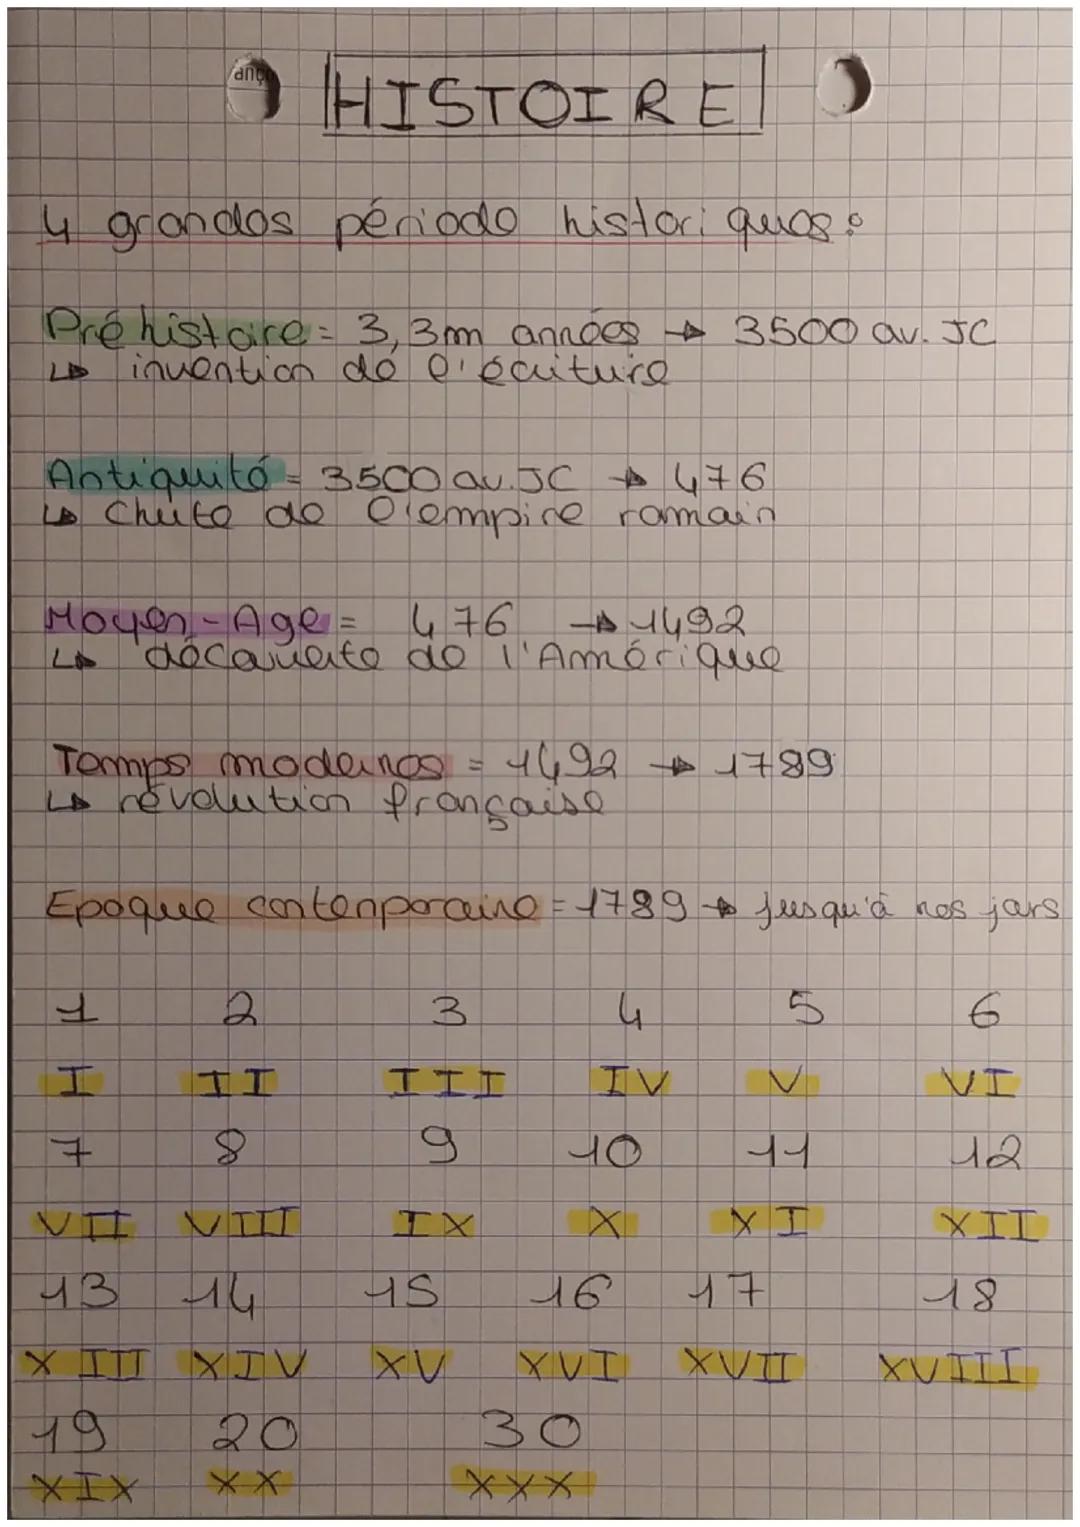 anço
HISTOIRE
4 grandes période historiques :
Préhistoire = 3,3m années → 3500 av. JC
↳ invention de l'écriture
Antiquité = 3500 av. JC → 476
↳ Chute de l'empire romain
Moyen-Age = 476 → 1492
↳ découverte de l'Amérique
Temps modernes = 1492 → 1789
↳ révolution française
Epoque contenporaine = 1789 → jusqu'à nos jours
1 2 3 4 5 6
I II III IV V VI
7 8 9 10 11 12
VII VIII IX X XI XII
13 14 15 16 17 18
XIII XIV XV XVI XVII XVIII
19 20 30
XIX XX XXX